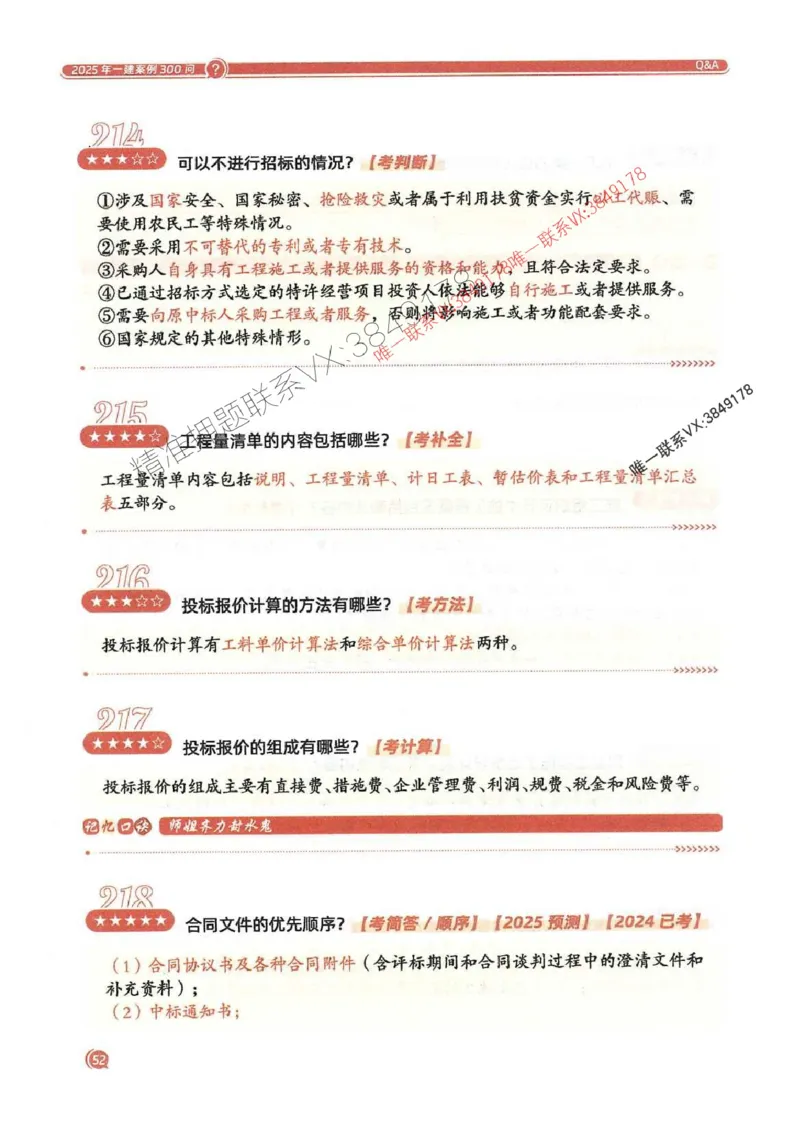 2025年一建案例300问 ?
Q&A
214
★★★☆☆ 可以不进行招标的情况？【考判断】
①涉及国家安全、国家秘密、抢险救灾或者属于利用扶贫资金实行以工代赈、需
要使用农民工等特殊情况。
②需要采用不可替代的专利或者专有技术。
③采购人自身具有工程施工或者提供服务的资格和能力，且符合法定要求。
④已通过招标方式选定的特许经营项目投资人依法能够自行施工或者提供服务。
⑤需要向原中标人采购工程或者服务，否则将影响施工或者功能配套要求。
⑥国家规定的其他特殊情形。
唯一联系VX:3849178
唯一联系VX:3849178
精准押题联系VX:3849178
唯一联系VX:3849178
215
★★★★☆ 工程量清单的内容包括哪些？【考补全】
工程量清单内容包括说明、工程量清单、计日工表、暂估价表和工程量清单汇总
表五部分。
216
★★★☆☆ 投标报价计算的方法有哪些？【考方法】
投标报价计算有工料单价计算法和综合单价计算法两种。
217
★★★★☆ 投标报价的组成有哪些？【考计算】
投标报价的组成主要有直接费、措施费、企业管理费、利润、规费、税金和风险费等。
记忆口诀 师姐齐力封水鬼
218
★★★★★ 合同文件的优先顺序？【考简答/顺序】【2025预测】【2024已考】
（1）合同协议书及各种合同附件（含评标期间和合同谈判过程中的澄清文件和
补充资料）；
（2）中标通知书；
52